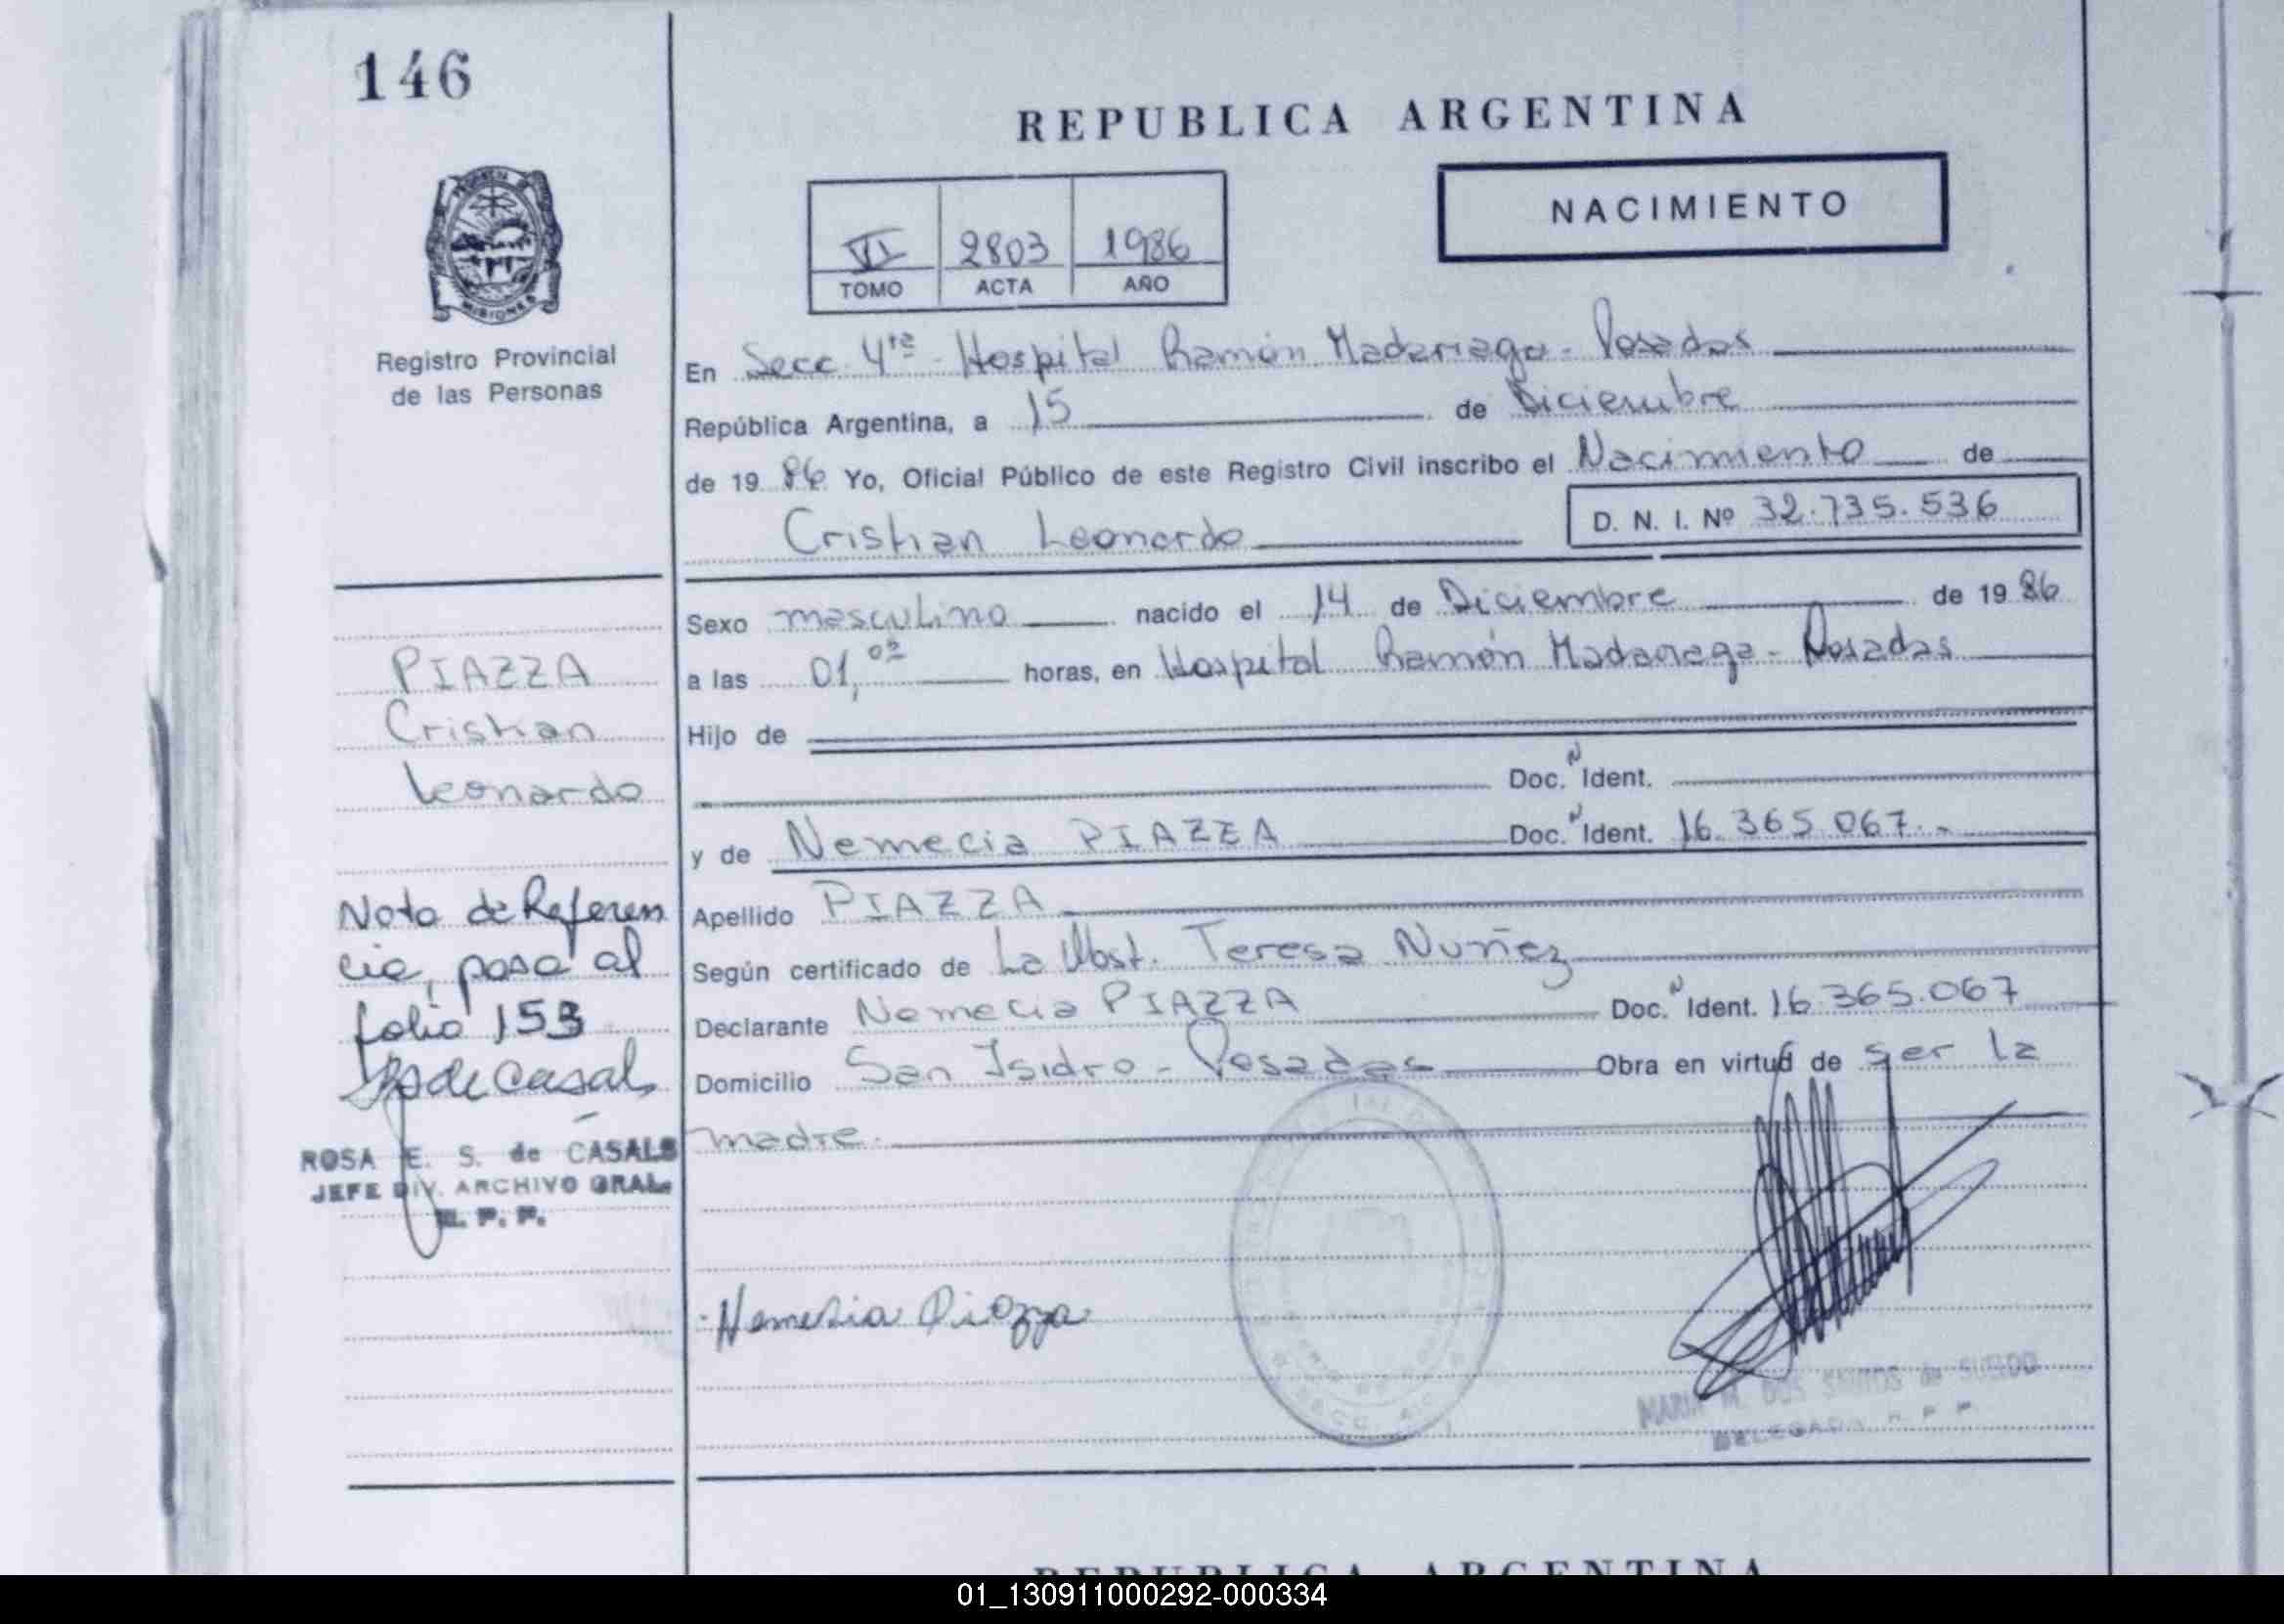 146
REPUBLICA ARGENTINA
NACIMIENTO
VI 2803 1986
TOMO ACTA AÑO
MISIONES
Registro Provincial
de las Personas
En Secc. 4ta - Hospital Ramón Madariaga - Posadas
República Argentina, a 15 de Diciembre
de 19 86 Yo, Oficial Público de este Registro Civil inscribo el Nacimiento de
Cristian Leonardo
D. N. I. Nº 32.735.536
Sexo masculino nacido el 14 de Diciembre de 19 86
a las 01, horas, en Hospital Ramón Madariaga - Posadas
Hijo de
Doc. N Ident.
y de Nemecia PIAZZA Doc. N Ident. 16.365.067.-
Apellido PIAZZA
Según certificado de La Obst. Teresa Nuñez
Declarante Nemecia PIAZZA Doc. N Ident. 16.365.067
Domicilio San Isidro - Posadas Obra en virtud de ser la
madre.
Nemesia Piazza
MARIA M. DOS SANTOS de SUELDO
DELEGADA R. P. P.
PIAZZA
Cristian
Leonardo
Nota de Referen
cia, pasa al
folio 153
de Casals
ROSA E. S. de CASALS
JEFE DIV. ARCHIVO GRAL.
R. P. P.
REPUBLICA ARGENTINA
01_130911000292-000334